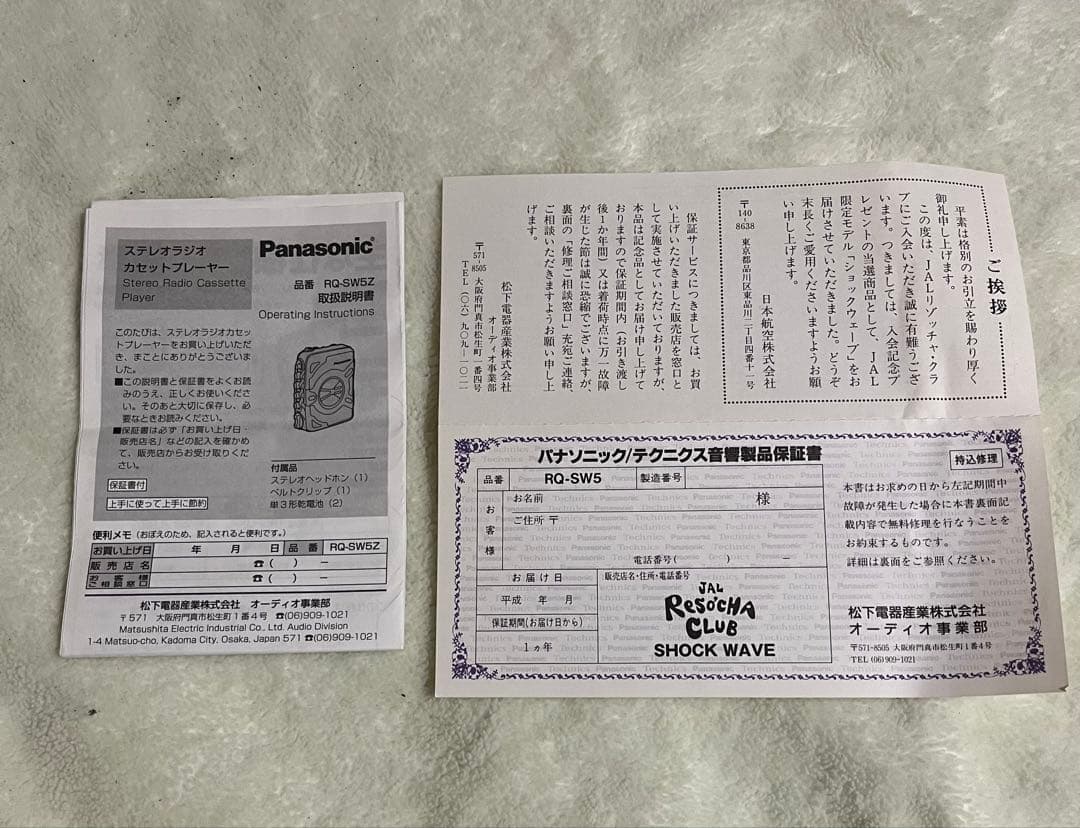 ステレオラジオ
カセットプレーヤー
Stereo Radio Cassette
Player
Panasonic
品番 RQ-SW5Z
取扱説明書
Operating Instructions
このたびは、ステレオラジオカセッ
トプレーヤーをお買い上げいただ
き、まことにありがとうございま
した。
■この説明書と保証書をよくお読
みのうえ、正しくお使いくださ
い。そのあと大切に保存し、必
要なときお読みください。
■保証書は必ず「お買い上げ日・
販売店名」などの記入を確かめ
て、販売店からお受け取りくだ
さい。
保証書付
上手に使って上手に節約
付属品
ステレオヘッドホン(1)
ベルトクリップ(1)
単3形乾電池(2)
便利メモ(おぼえのため、記入されると便利です。)
お買い上げ日 年 月 日 品番 RQ-SW5Z
販売店名 ☎( ) −
お客様ご相談窓口 ☎( ) −
松下電器産業株式会社 オーディオ事業部
〒571 大阪府門真市松生町1番4号 ☎(06)909-1021
Matsushita Electric Industrial Co., Ltd. Audio Division
1-4 Matsuo-cho, Kadoma City, Osaka, Japan 571 ☎(06)909-1021
ご挨拶
平素は格別のお引立を賜わり厚く
御礼申し上げます。
この度は、JALリゾッチャクラ
ブにご入会いただき誠に有難うござ
います。つきましては、入会記念プ
レゼントの当選商品として、JAL
限定モデル「ショックウェーブ」をお
届けさせていただきました。どうぞ
末長くご愛用くださいますようお願
い申し上げます。
日本航空株式会社
〒140-8638 東京都品川区東品川二丁目四番十一号
保証サービスにつきましては、お買
い上げいただきました販売店を窓口と
して実施させていただいておりますが、
本品は記念品としてお届け申し上げて
おりますので保証期間内(お引き渡し
後1か年間)又は着荷時点に万一故障
が生じた節は誠に恐縮でございますが、
裏面の「修理ご相談窓口」充宛ご連絡、
ご相談いただきますようお願い申し上
げます。
松下電器産業株式会社
オーディオ事業部
〒571-8505 大阪府門真市松生町一番四号
TEL(〇六)九〇九-一〇二一
パナソニック/テクニクス音響製品保証書
持込修理
品番 RQ-SW5 製造番号
お客様
お名前 様
ご住所 〒
電話番号( ) −
お届け日
平成 年 月
保証期間(お届け日から)
1ヵ年
販売店名・住所・電話番号
JAL
RESO'CHA
CLUB
SHOCK WAVE
本書はお求めの日から左記期間中
故障が発生した場合に本書裏面記
載内容で無料修理を行なうことを
お約束するものです。
詳細は裏面をご参照ください。
松下電器産業株式会社
オーディオ事業部
〒571-8505 大阪府門真市松生町1番4号
TEL (06)909-1021